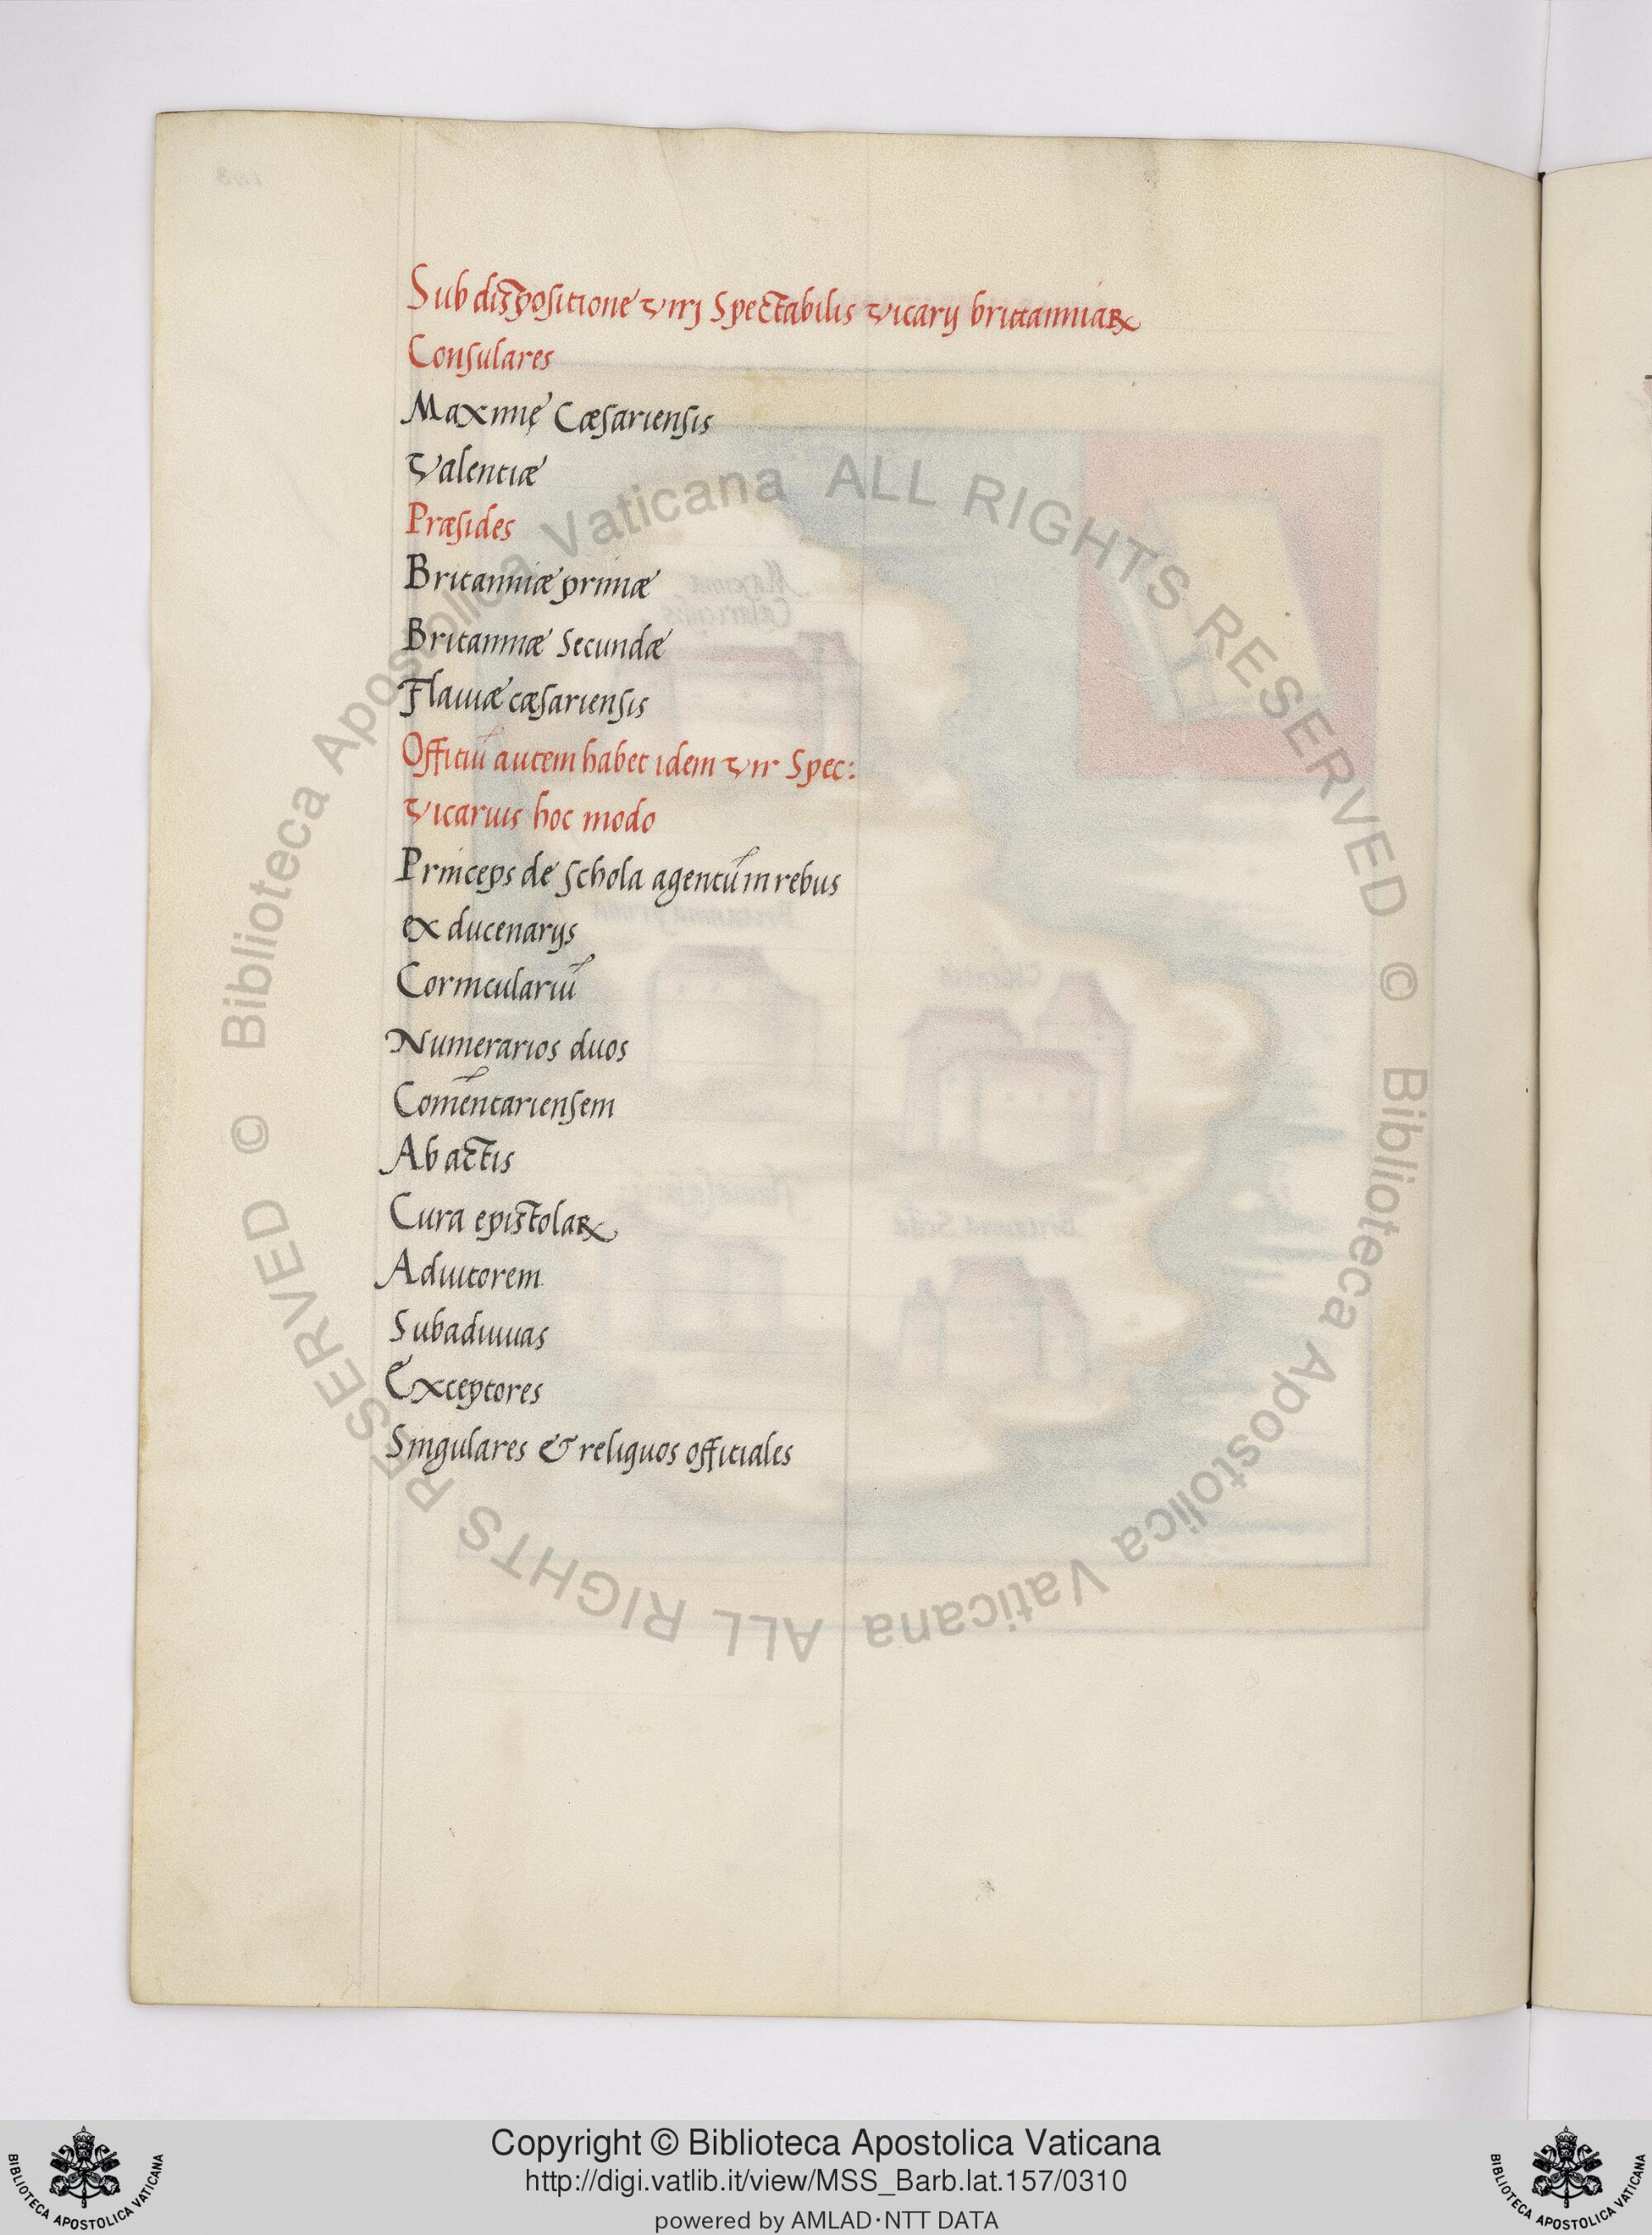 Sub dispositione Virj Spectabilis Vicarij brittanniaꝝ
Consulares
Maximę Cæsariensis
Valentiæ
Præsides
Britanniæ primæ
Britanniæ Secundæ
Flauiæ cæsariensis
Offitiū autem habet idem Vir Spec:
Vicarius hoc modo
Princeps de Schola agentūin rebus
ex ducenarijs
Corniculariū
Numerarios duos
Comēntariensem
Ab actis
Cura epistolaꝝ
Adiutorem
Subadiuuas
Exceptores
Singulares & reliquos offitiales
© Biblioteca Apostolica Vaticana ALL RIGHTS RESERVED
© Biblioteca Apostolica Vaticana ALL RIGHTS RESERVED
Copyright © Biblioteca Apostolica Vaticana
http://digi.vatlib.it/view/MSS_Barb.lat.157/0310
powered by AMLAD·NTT DATA
BIBLIOTECA APOSTOLICA VATICANA
BIBLIOTECA APOSTOLICA VATICANA